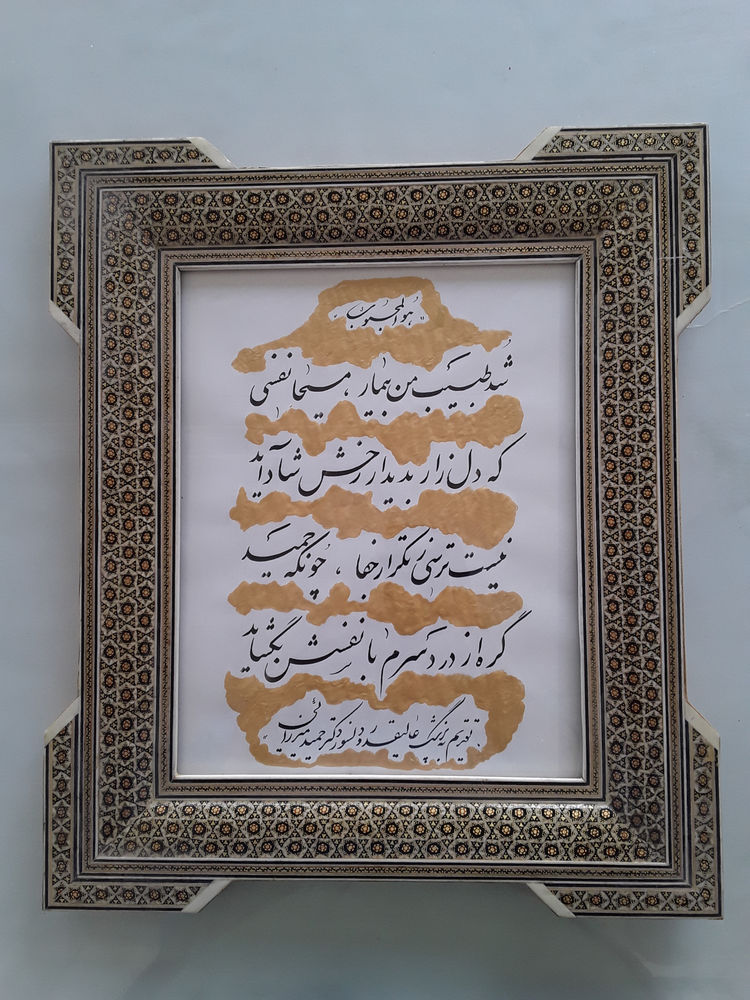 هوالمحبوب
شد طبیب من بیمار، مسیحا نفسی
که دل زار بدیدار رخش شاد آید
نیست ترسی ز تکرار جفا، چونکه حمید
گره از درد سرم با نفسش بگشاید
تقدیم به پزشک عالیقدر و دلسوز دکتر حمید میرزائی